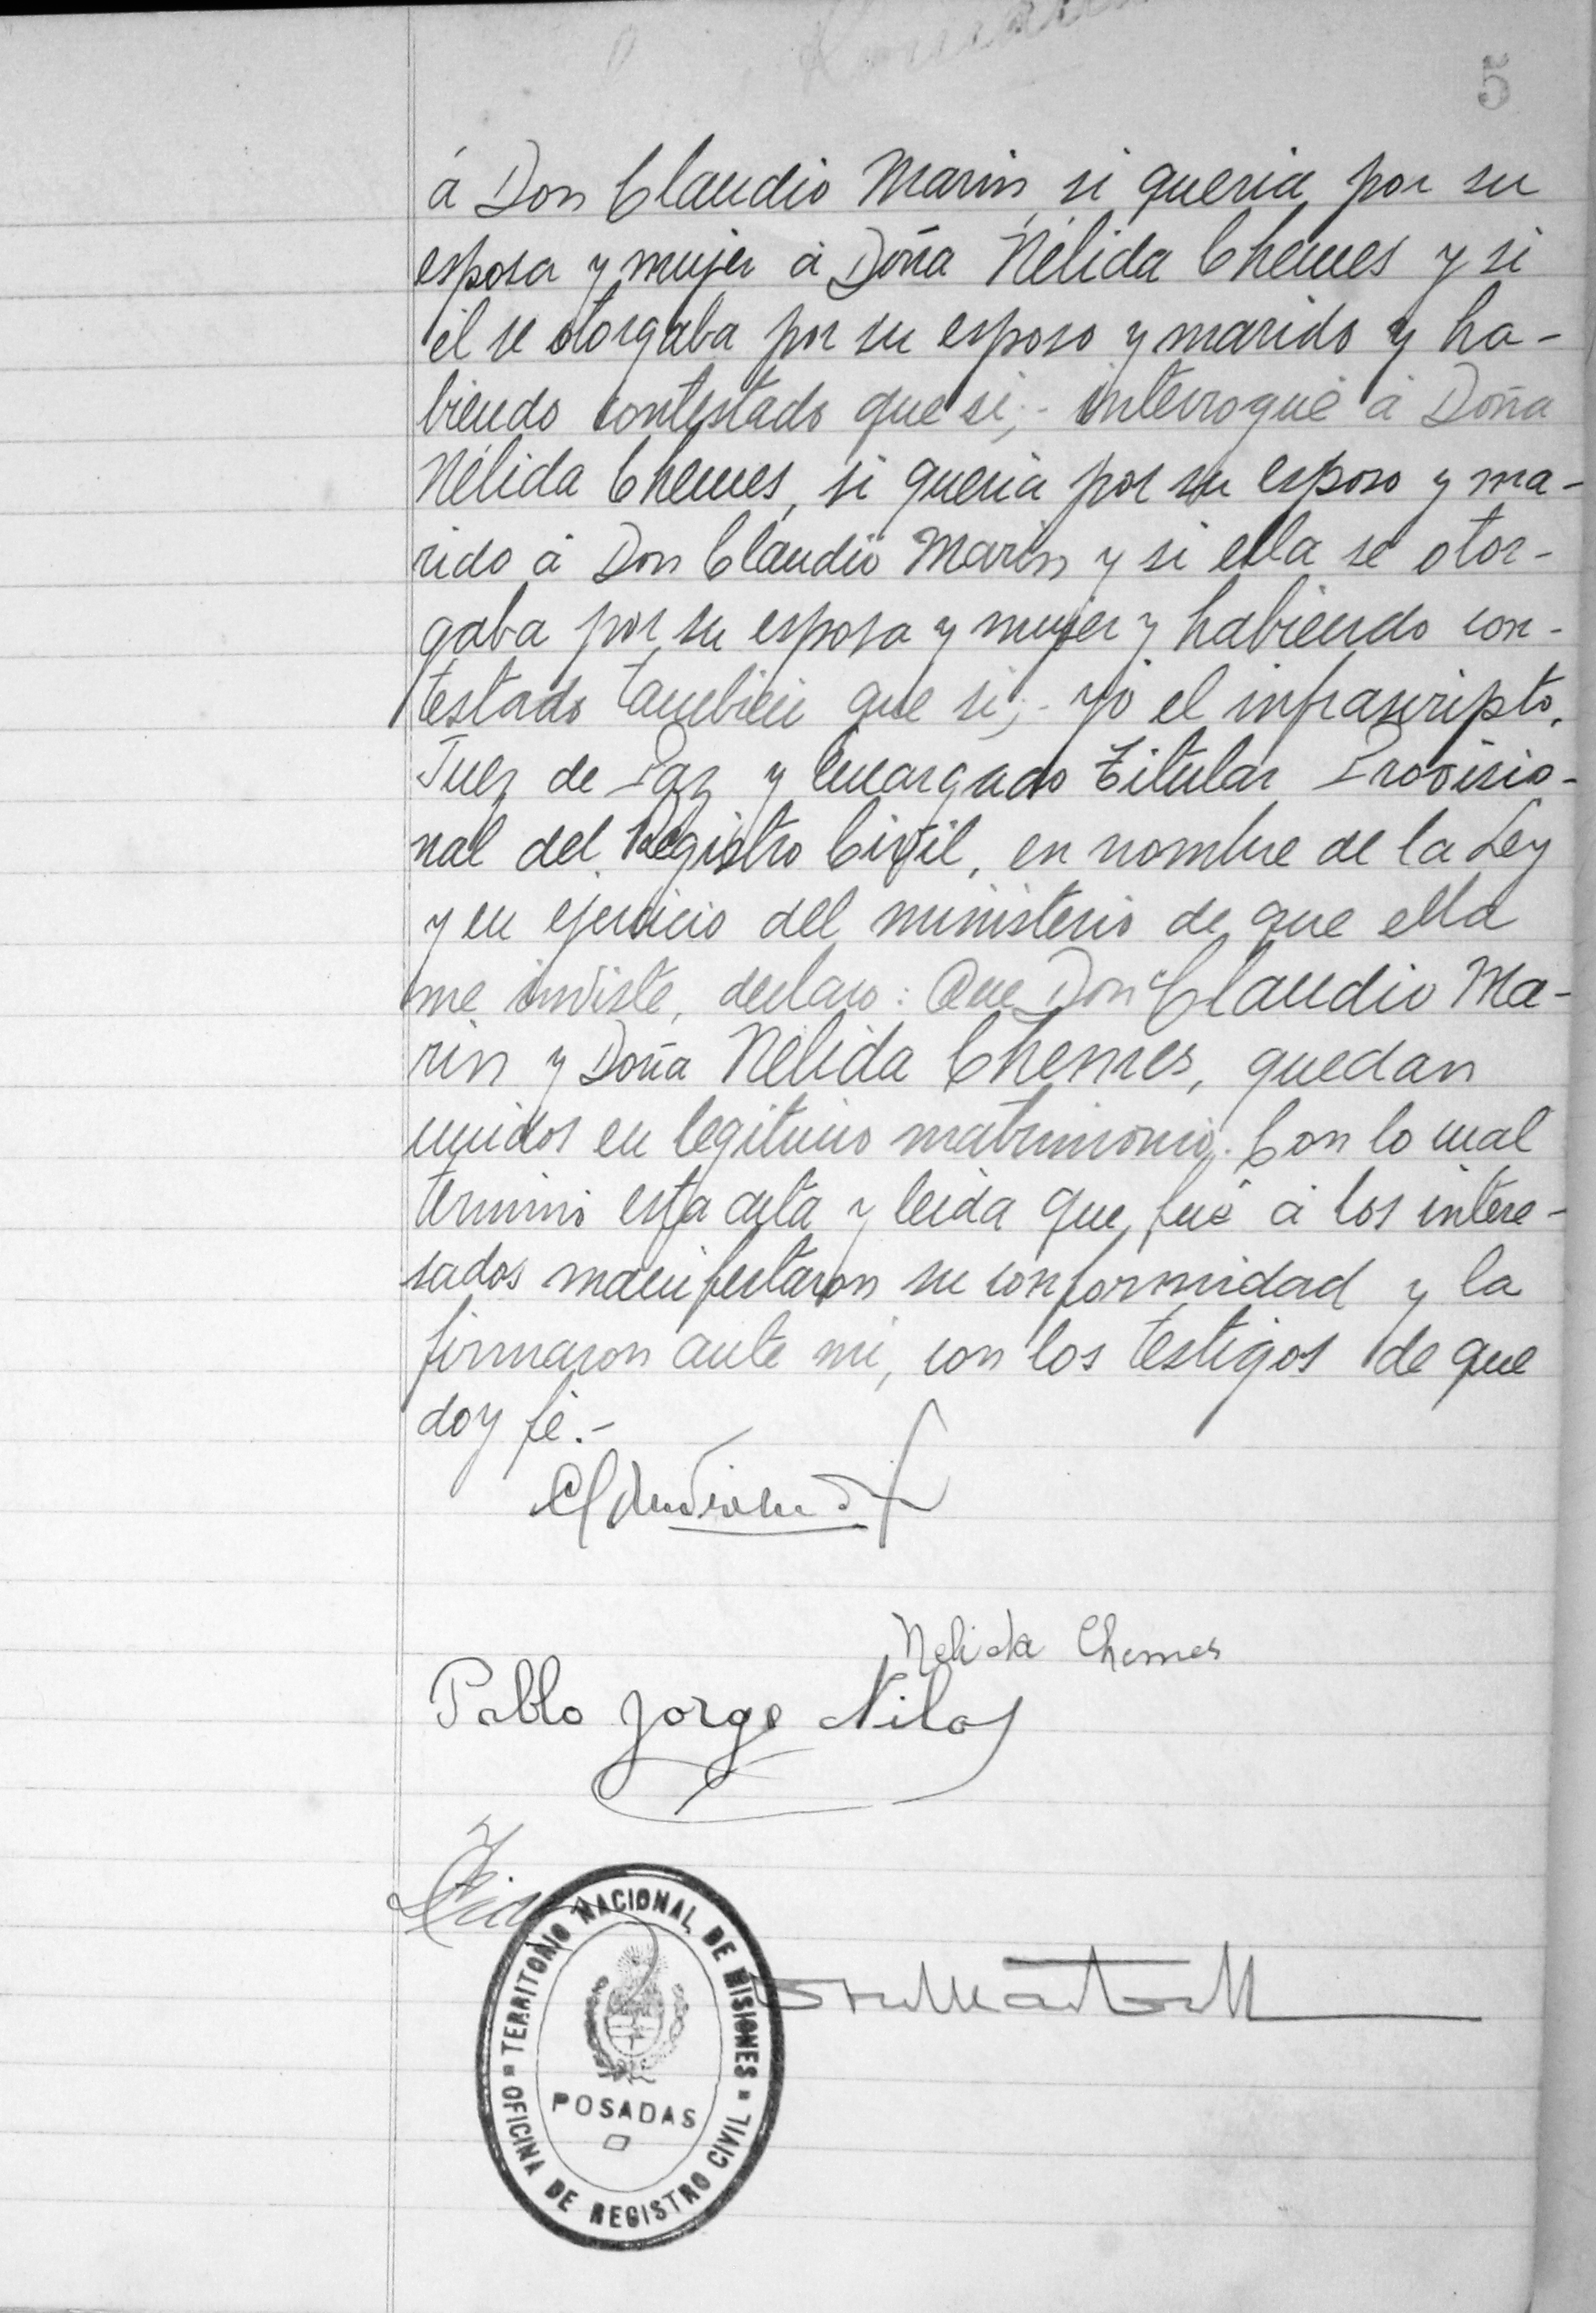 5
á Don Claudio Marin, si queria por su
esposa y mujer á Doña Nélida Chemes y si
él se otorgaba por su esposo y marido y ha-
biendo contestado que si;- interrogué á Doña
Nélida Chemes, si queria por su esposo y ma-
rido á Don Claudio Marin y si ella se otor-
gaba por su esposa y mujer y habiendo con-
testado tambien que si;- yo el infrascripto,
Juez de Paz y Encargado Titular Provisio-
nal del Registro Civil, en nombre de la Ley
y en ejercicio del ministerio de que ella
me inviste, declaro: Que Don Claudio Ma-
rin y Doña Nélida Chemes, quedan
unidos en legitimo matrimonio. Con lo cual
terminó esta acta y leida que fué á los intere-
sados manifestaron su conformidad y la
firmaron ante mi, con los testigos de que
doy fé.-
Nelida Chemes
Pablo Jorge Nilos
TERRITORIO NACIONAL DE MISIONES
POSADAS
OFICINA DE REGISTRO CIVIL